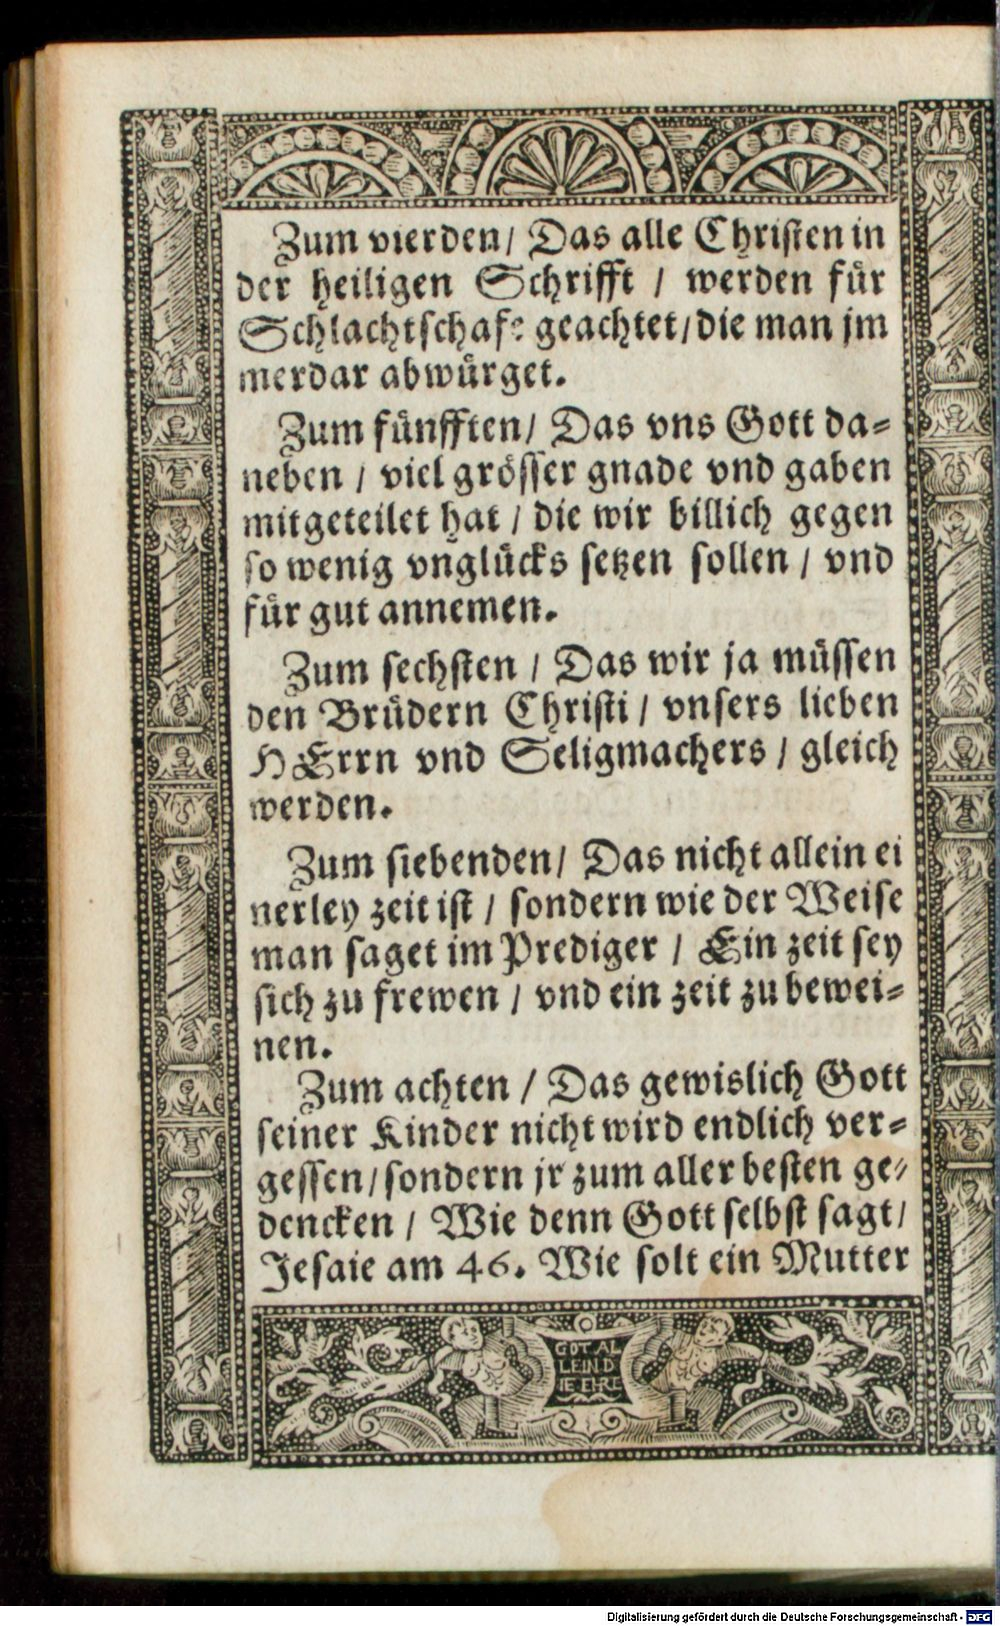 Zum vierden/ Das alle Christen in
der heiligen Schrifft / werden für
Schlachtschafe geachtet/die man jm
merdar abwürget.
Zum fünfften/ Das vns Gott da=
neben / viel grösser gnade vnd gaben
mitgeteilet hat / die wir billich gegen
so wenig vnglücks setzen sollen / vnd
für gut annemen.
Zum sechsten / Das wir ja müssen
den Brüdern Christi / vnsers lieben
HErrn vnd Seligmachers / gleich
werden.
Zum siebenden/ Das nicht allein ei
nerley zeit ist / sondern wie der Weise
man saget im Prediger / Ein zeit sey
sich zu frewen / vnd ein zeit zu bewei=
nen.
Zum achten / Das gewislich Gott
seiner Kinder nicht wird endlich ver=
gessen/sondern jr zum aller besten ge=
dencken / Wie denn Gott selbst sagt/
Jesaie am 46. Wie solt ein Mutter
GOT AL
LEIN D
IE EHRE
Digitalisierung gefördert durch die Deutsche Forschungsgemeinschaft - DFG